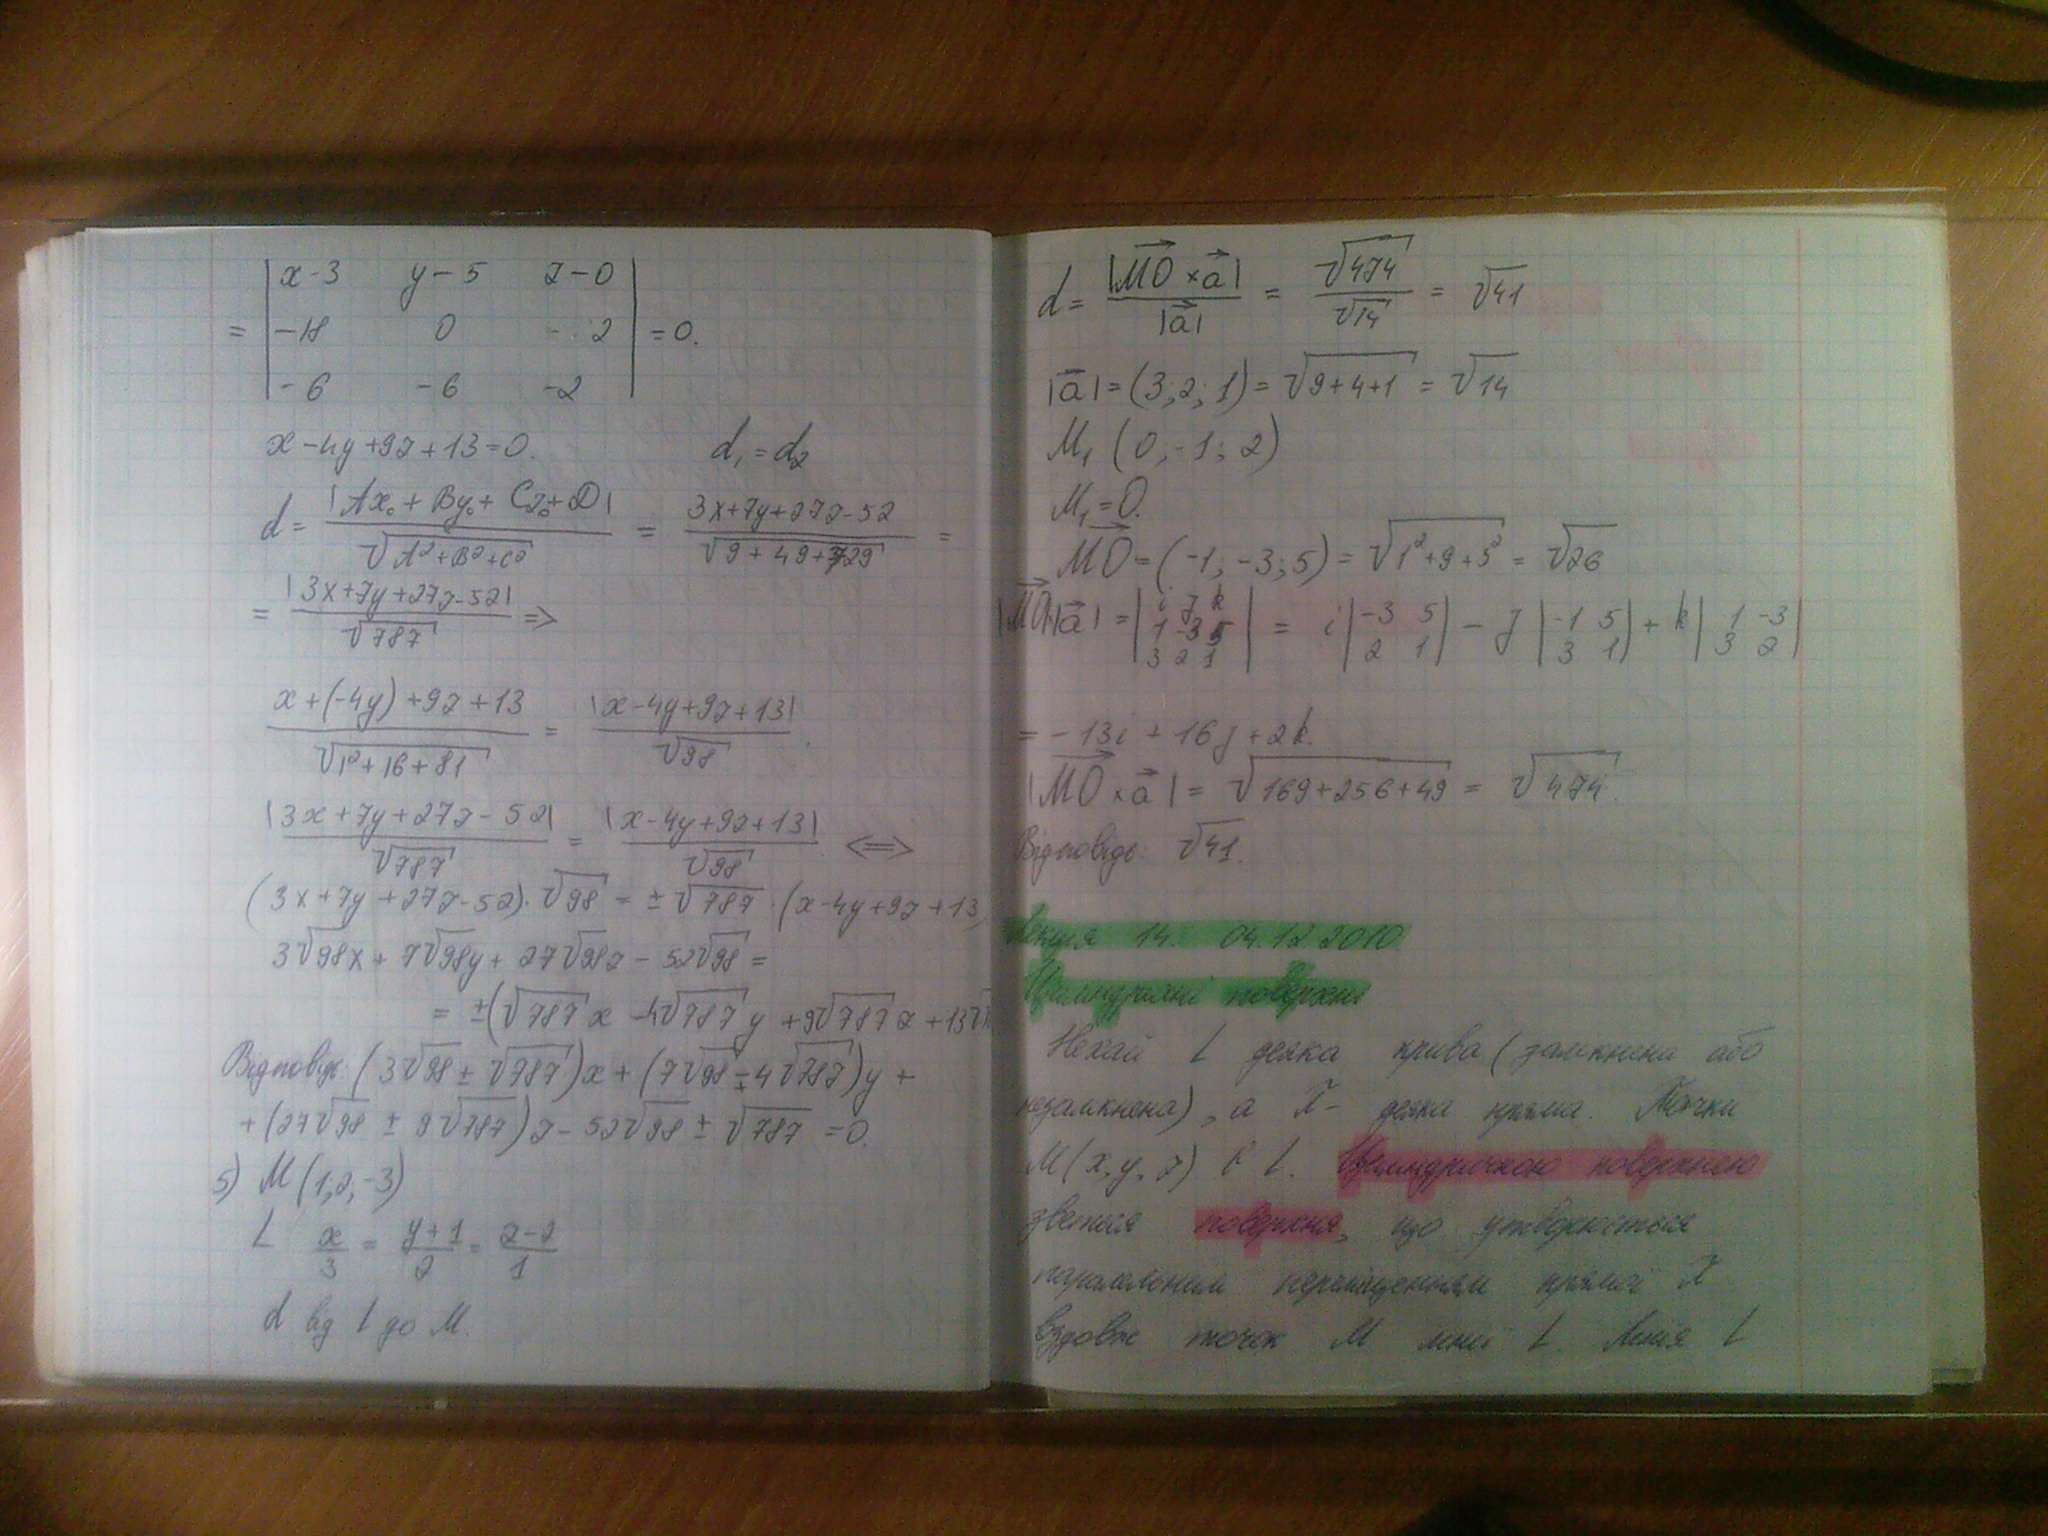 = | x-3 y-5 z-0 |
| -18 0 2 | = 0.
| -6 -6 -2 |
x-4y+9z+13=0. d₁=d₂
d = |Ax₀+By₀+Cz₀+D| / √(A²+B²+C²) = 3x+7y+27z-52 / √(9+49+729) =
= |3x+7y+27z-52| / √787 =>
x+(-4y)+9z+13 / √(1²+16+81) = |x-4y+9z+13| / √98.
|3x+7y+27z-52| / √787 = |x-4y+9z+13| / √98 <=>
(3x+7y+27z-52)·√98 = ±√787·(x-4y+9z+13
3√98x+7√98y+27√98z-52√98 =
= ±(√787x-4√787y+9√787z+13√
Відповідь: (3√98±√787)x+(7√98∓4√787)y+
+(27√98±9√787)z-52√98±√787=0.
5) M(1;2;-3)
L x/3 = y+1/2 = z-2/1
d від L до M.
d = |MO×a| / |a| = √474 / √14 = √41
|a| = (3;2;1) = √(9+4+1) = √14
M₁ (0;-1;2)
M₁=O.
MO=(-1;-3;5) = √(1²+9+5²) = √26
|MO×a| = | i j k | = i | -3 5 | - j | -1 5 | + k | 1 -3 |
| 1 -3 5 | | 2 1 | | 3 1 | | 3 2 |
| 3 2 1 |
= -13i+16j+2k.
|MO×a| = √(169+256+49) = √474.
Відповідь: √41.
Лекція 14. 04.12.2010
Циліндричні поверхні
Нехай L деяка крива (замкнена або
незамкнена), а деяка пряма. Точки
M(x,y,z) є L. Циліндричною поверхнею
зветься поверхня, що утворюється
паралельним переміщенням прямої
вздовж точок M лінії L. Лінія L